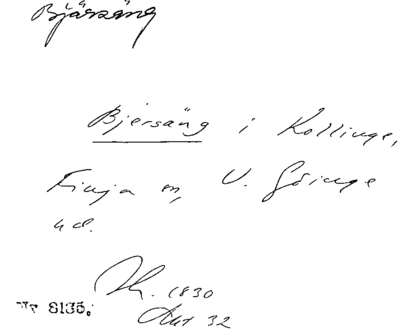 Bjärsäng
Bjersäng i Kollinge,
Finja sn, V. Göinge
hd.
1830
Akt 32
Nr 8135.